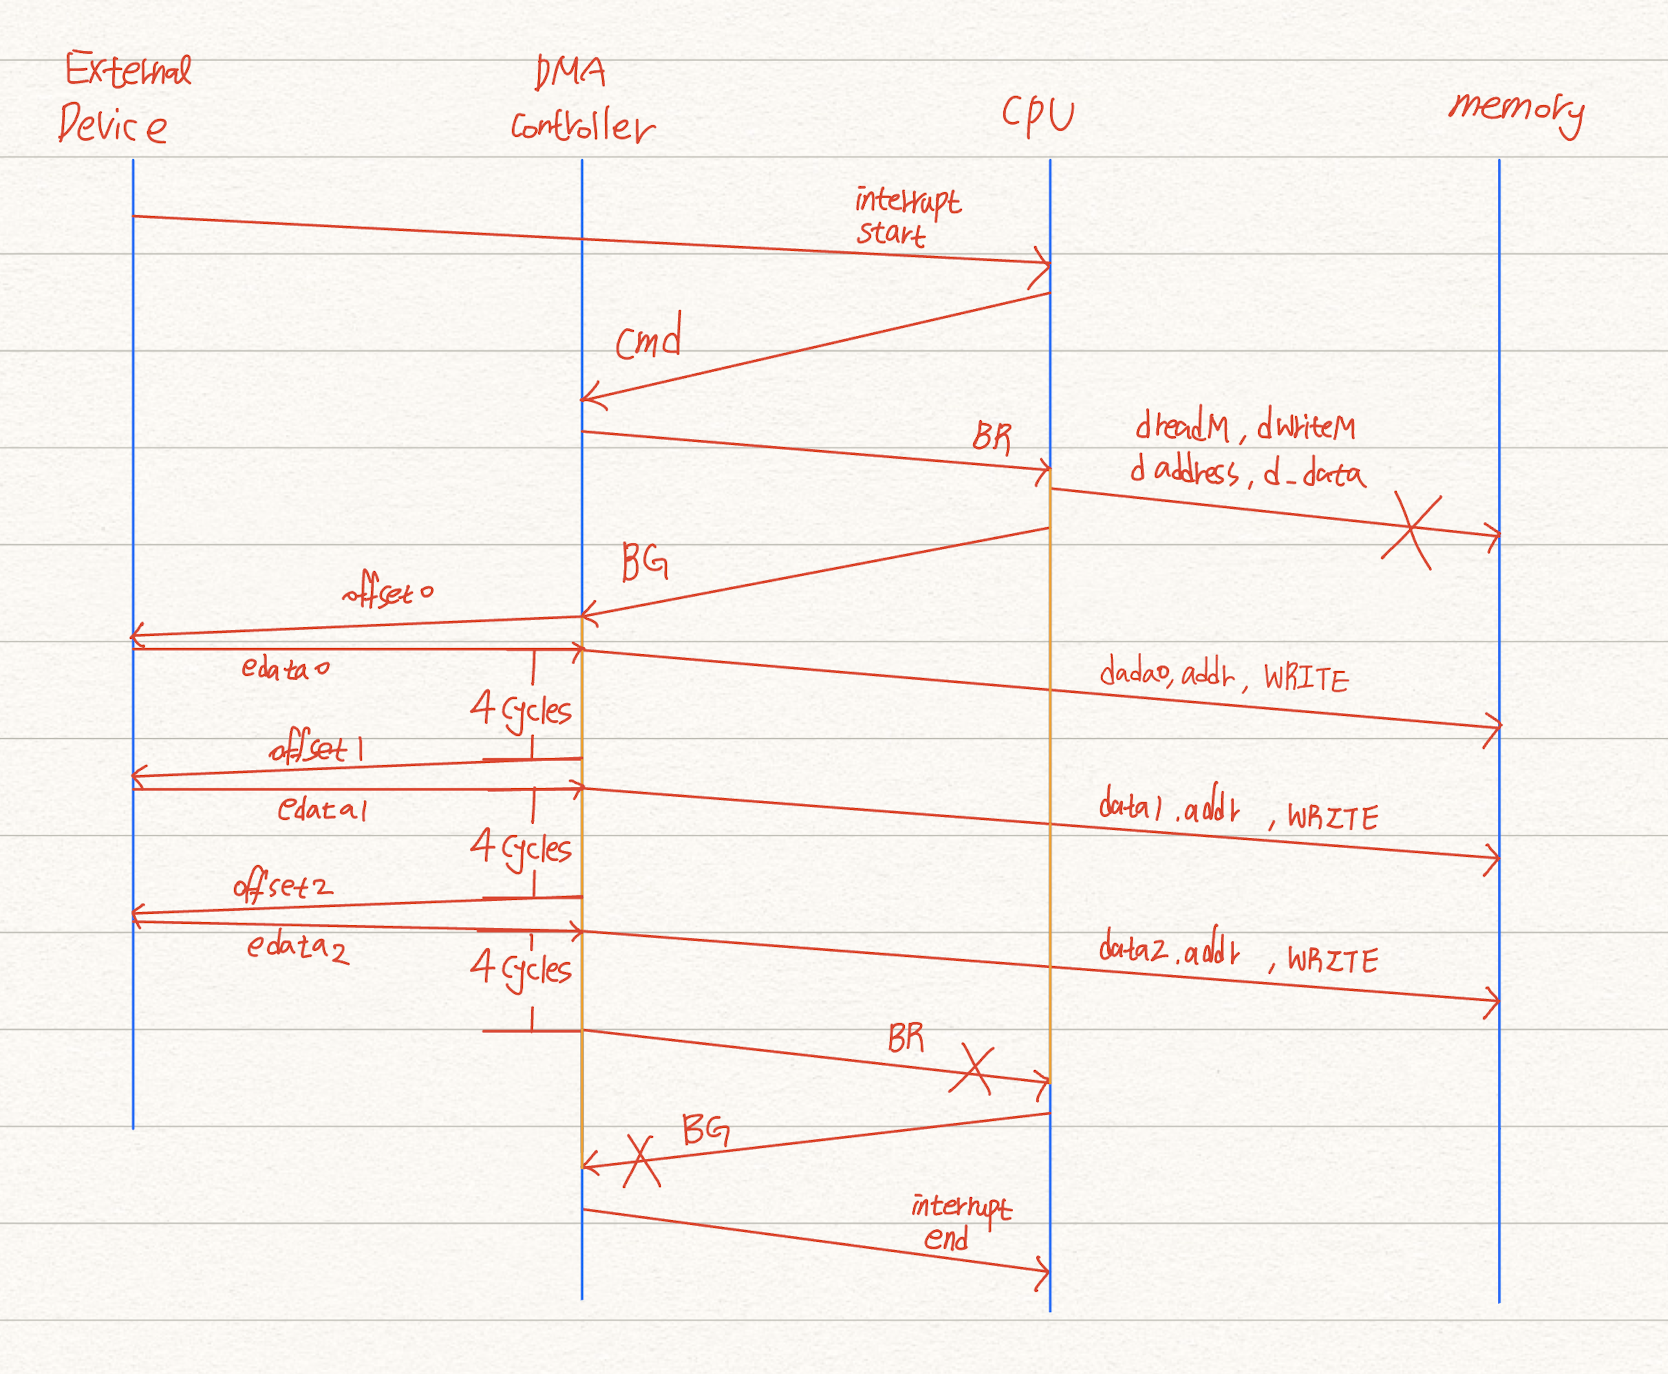 External
Device
DMA
controller
CPU
memory
interrupt
start
cmd
BR
dreadM, dwriteM
d address, d_data
BG
offset0
edata0
dada0, addr, WRITE
4 cycles
offset1
edata1
data1.addr , WRITE
4 cycles
offset2
edata2
data2.addr , WRITE
4 cycles
BR
BG
interrupt
end